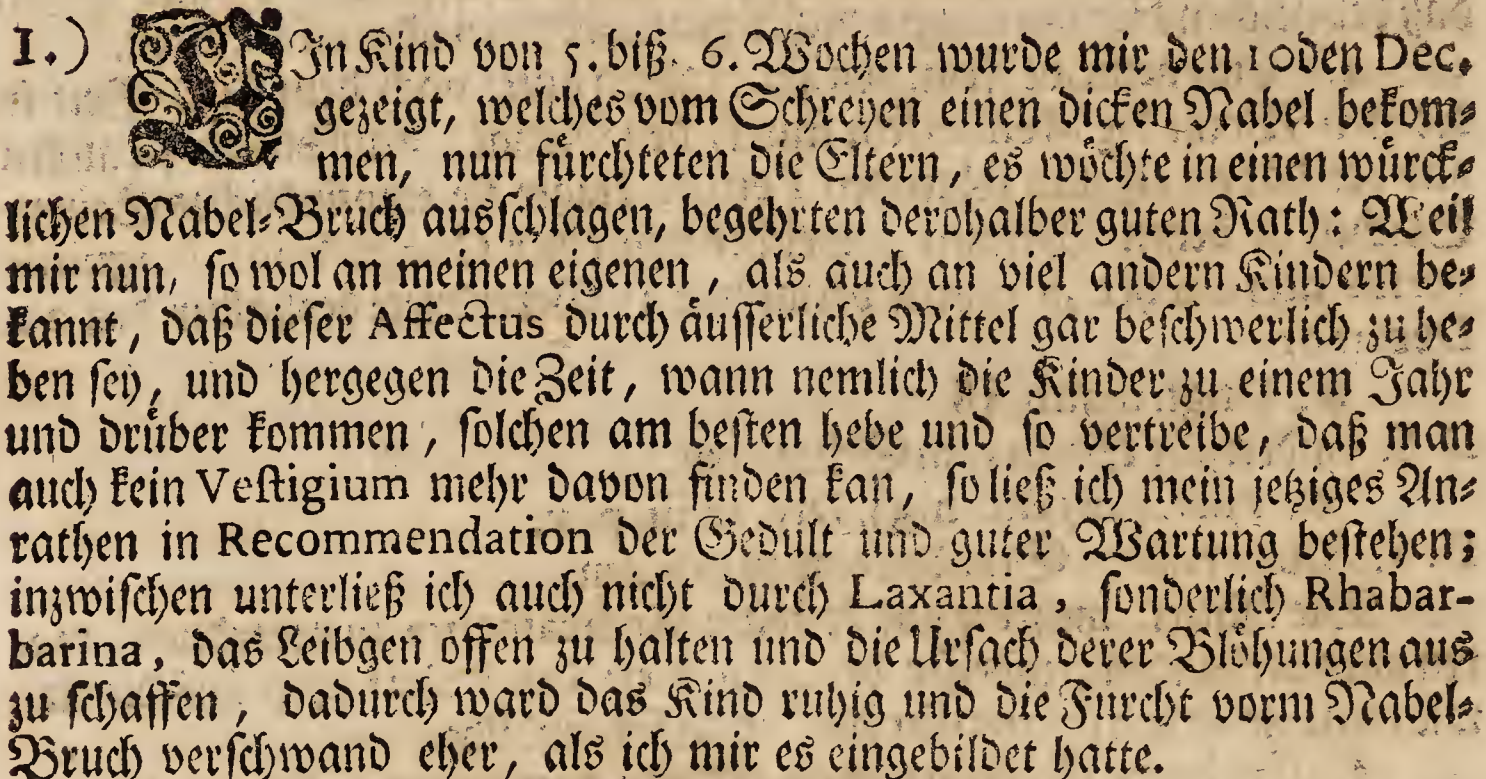 I.) EIn Kind von 5. biß 6. Wochen wurde mir den 10den Dec.
gezeigt, welches vom Schreyen einen dicken Nabel bekom⸗
men, nun fürchteten die Eltern, es möchte in einen würck⸗
lichen Nabel⸗Bruch ausschlagen, begehrten derohalber guten Rath: Weil
mir nun, so wol an meinen eigenen, als auch an viel andern Kindern be⸗
kannt, daß dieser Affectus durch äusserliche Mittel gar beschwerlich zu he⸗
ben sey, und hergegen die Zeit, wann nemlich die Kinder zu einem Jahr
und drüber kommen, solchen am besten hebe und so vertreibe, daß man
auch kein Vestigium mehr davon finden kan, so ließ ich mein jetziges An⸗
rathen in Recommendation der Gedult und guter Wartung bestehen;
inzwischen unterließ ich auch nicht durch Laxantia, sonderlich Rhabar-
barina, das Leibgen offen zu halten und die Ursach derer Blöhungen aus
zu schaffen, dadurch ward das Kind ruhig und die Furcht vorm Nabel⸗
Bruch verschwand eher, als ich mir es eingebildet hatte.